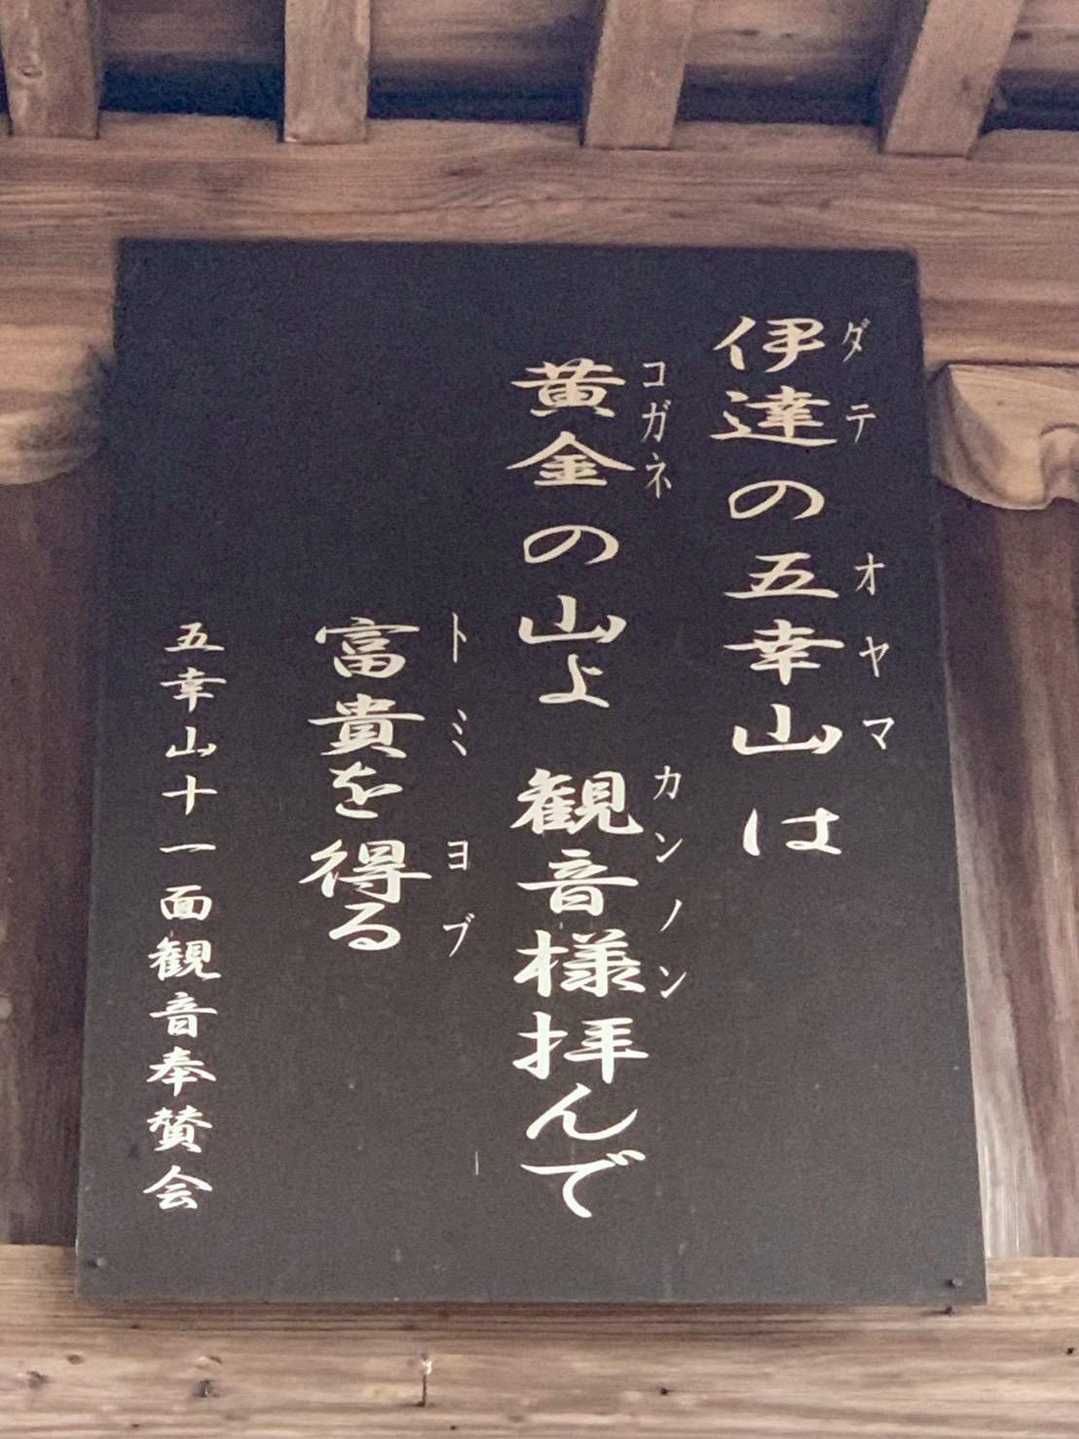 伊達の五幸山は
ダテ オヤマ
黄金の山よ 観音様拝んで
コガネ カンノン
富貴を得る
トミ ヨブ
五幸山十一面観音奉賛会